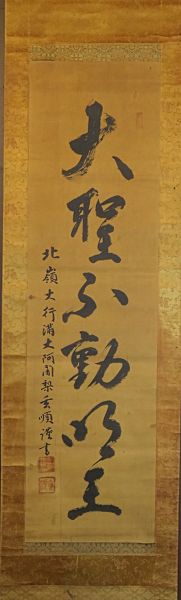 大聖不動明王
北嶺大行満大阿闍梨玄順謹書